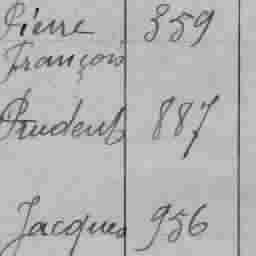 Pierre 359
François
Prudent 887
Jacques 956